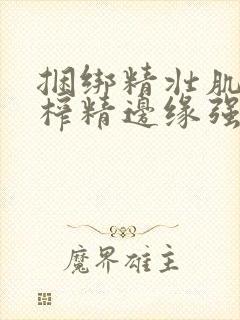 捆绑精壮肌
榨精邊缘强
魔界雄主